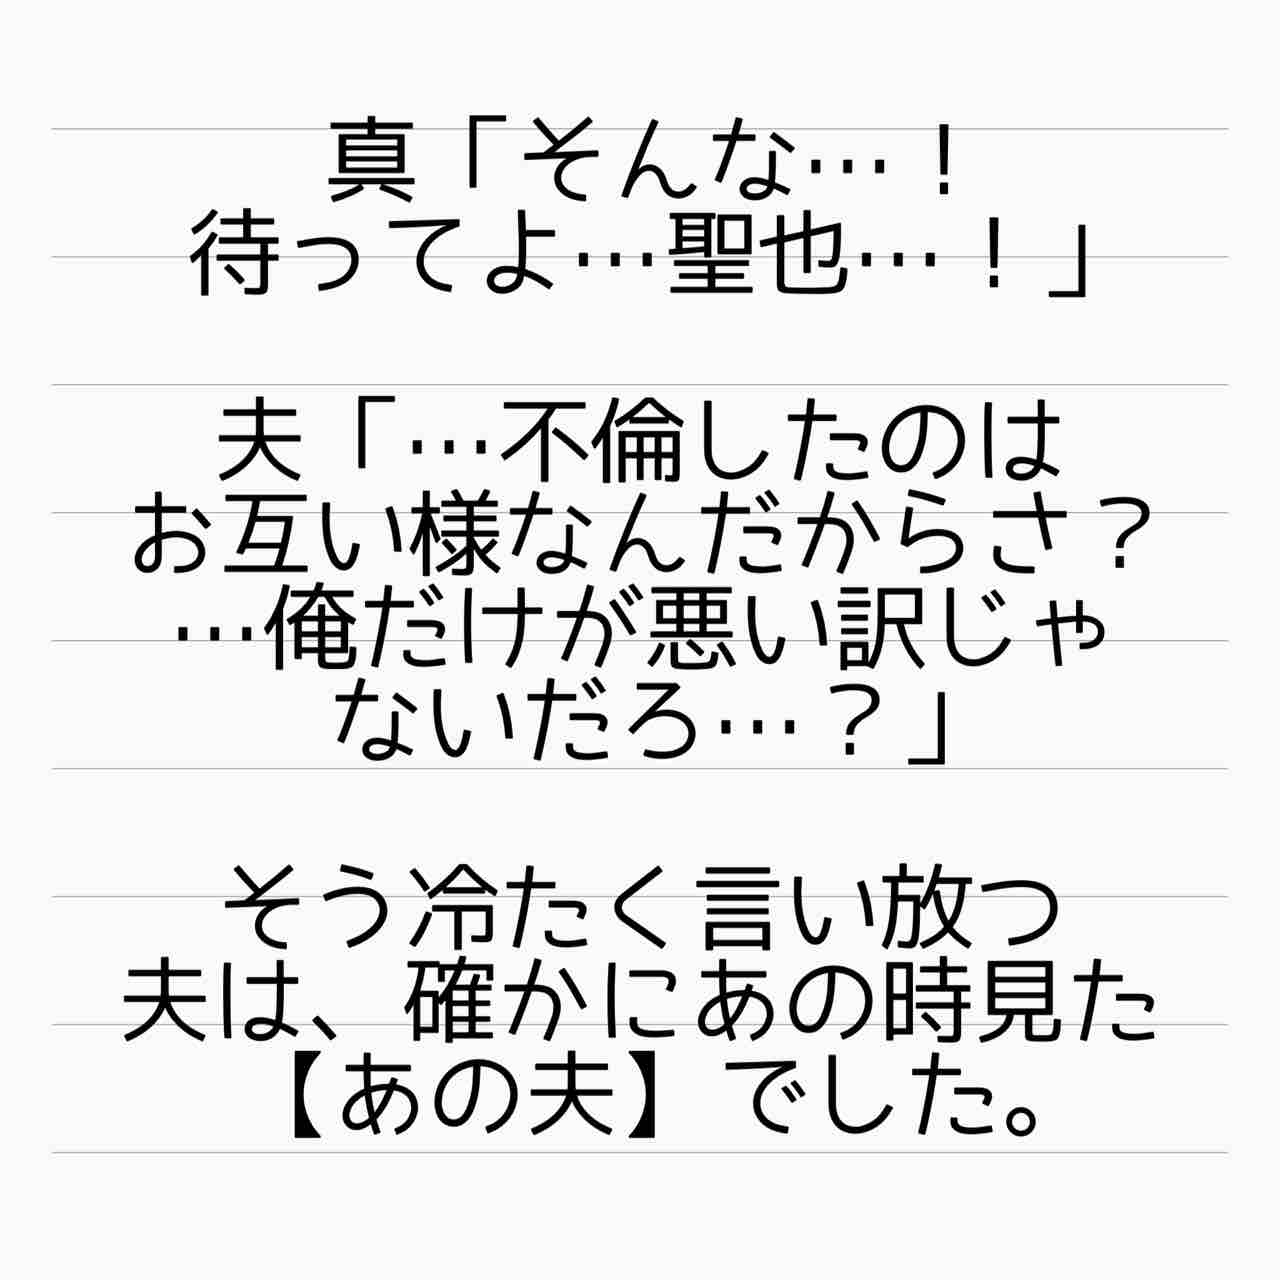 真「そんな…！
待ってよ…聖也…！」
夫「…不倫したのは
お互い様なんだからさ？
…俺だけが悪い訳じゃ
ないだろ…？」
そう冷たく言い放つ
夫は、確かにあの時見た
【あの夫】でした。